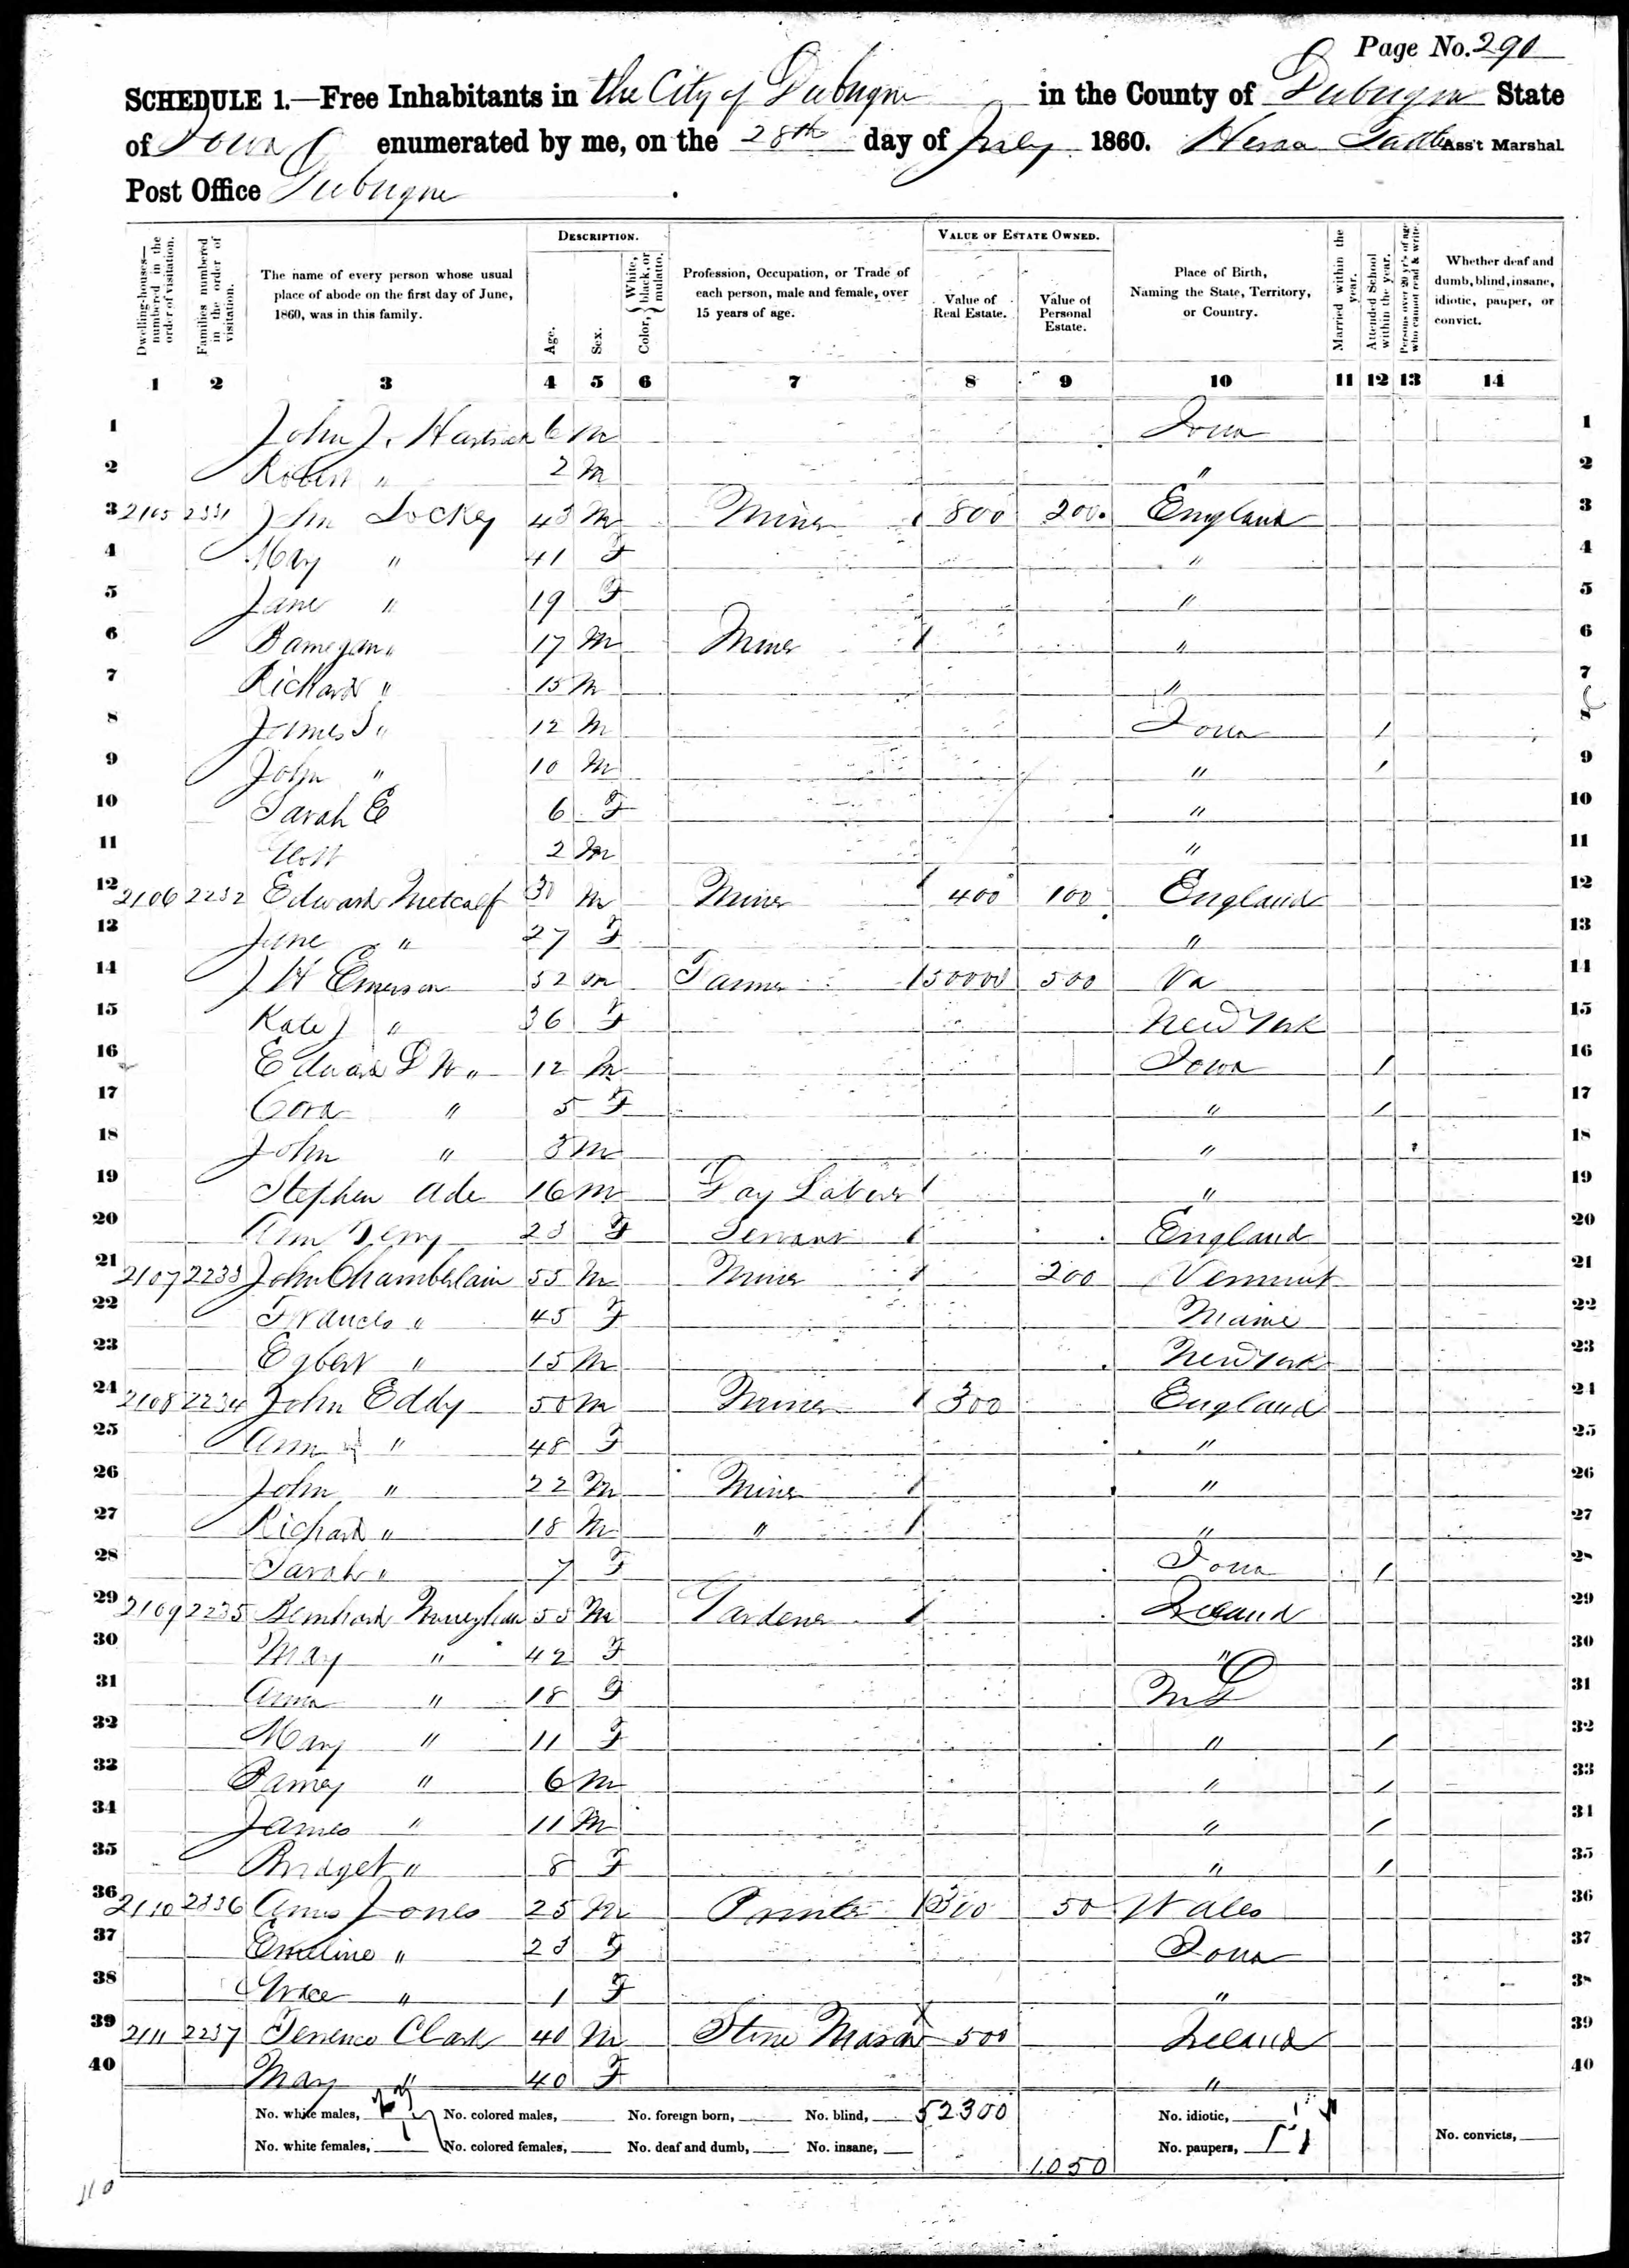 Page No. 290
SCHEDULE 1.—Free Inhabitants in the City of Dubuque in the County of Dubuque State
of Iowa enumerated by me, on the 28th day of July 1860. Ass't Marshal
Post Office Dubuque
DESCRIPTION. VALUE OF ESTATE OWNED.
Dwelling-houses—numbered in the order of visitation. Families numbered in the order of visitation. The name of every person whose usual place of abode on the first day of June, 1860, was in this family. Age. Sex. Color, { White, black, or mulatto. Profession, Occupation, or Trade of each person, male and female, over 15 years of age. Value of Real Estate. Value of Personal Estate. Place of Birth, Naming the State, Territory, or Country. Married within the year. Attended School within the year. Persons over 20 y'rs of age who cannot read & write. Whether deaf and dumb, blind, insane, idiotic, pauper, or convict.
1 2 3 4 5 6 7 8 9 10 11 12 13 14
1 John J. 6 m Iowa 1
2 Robert " 2 m " 2
3 2105 2231 John Lockey 43 m Miner 1 800 200 England 3
4 May " 41 F " 4
5 Jane " 19 F " 5
6 " 17 m Miner 1 " 6
7 Richard " 15 m " 7
8 James S " 12 m Iowa / 8
9 John " 10 m " / 9
10 Sarah E 6 F " 10
11 2 m " 11
12 2106 2232 Edward Metcalf 30 m Miner 1 400 100 England 12
13 Jane " 27 F " 13
14 J H Emerson 52 m 1 50000 500 Va 14
15 Kate J " 36 F New York 15
16 Edward " 12 m Iowa / 16
17 Cora " 5 F " / 17
18 John " 3 m " 18
19 Stephen Ade 16 m Day Laborer 1 " 19
20 Ann 23 F Servant 1 England 20
21 2107 2233 John Chamberlain 55 m Miner 1 200 Vermont 21
22 Frances " 45 F Maine 22
23 Egbert " 15 m New York 23
24 2108 2234 John Eddy 50 m Miner 1 300 England 24
25 Ann " 48 F " 25
26 John " 22 m Miner 1 " 26
27 Richard " 18 m " 1 " 27
28 Sarah " 7 F Iowa / 28
29 2109 2235 Bernhard 55 m Gardener 1 Ireland 29
30 May " 42 F " 30
31 Anna " 18 F 31
32 Mary " 11 F " / 32
33 " 6 m " / 33
34 James " 11 m " / 34
35 Bridget " 8 F " / 35
36 2110 2236 Jones 25 m 1 300 50 Wales 36
37 Emeline " 23 F Iowa 37
38 Grace " 1 F " 38
39 2111 2237 Terrence Clark 40 m Stone Mason 500 Ireland 39
40 May " 40 F " 40
No. white males, No. colored males, No. foreign born, No. blind, 52300 No. idiotic,
No. white females, No. colored females, No. deaf and dumb, No. insane, 1050 No. paupers, No. convicts,